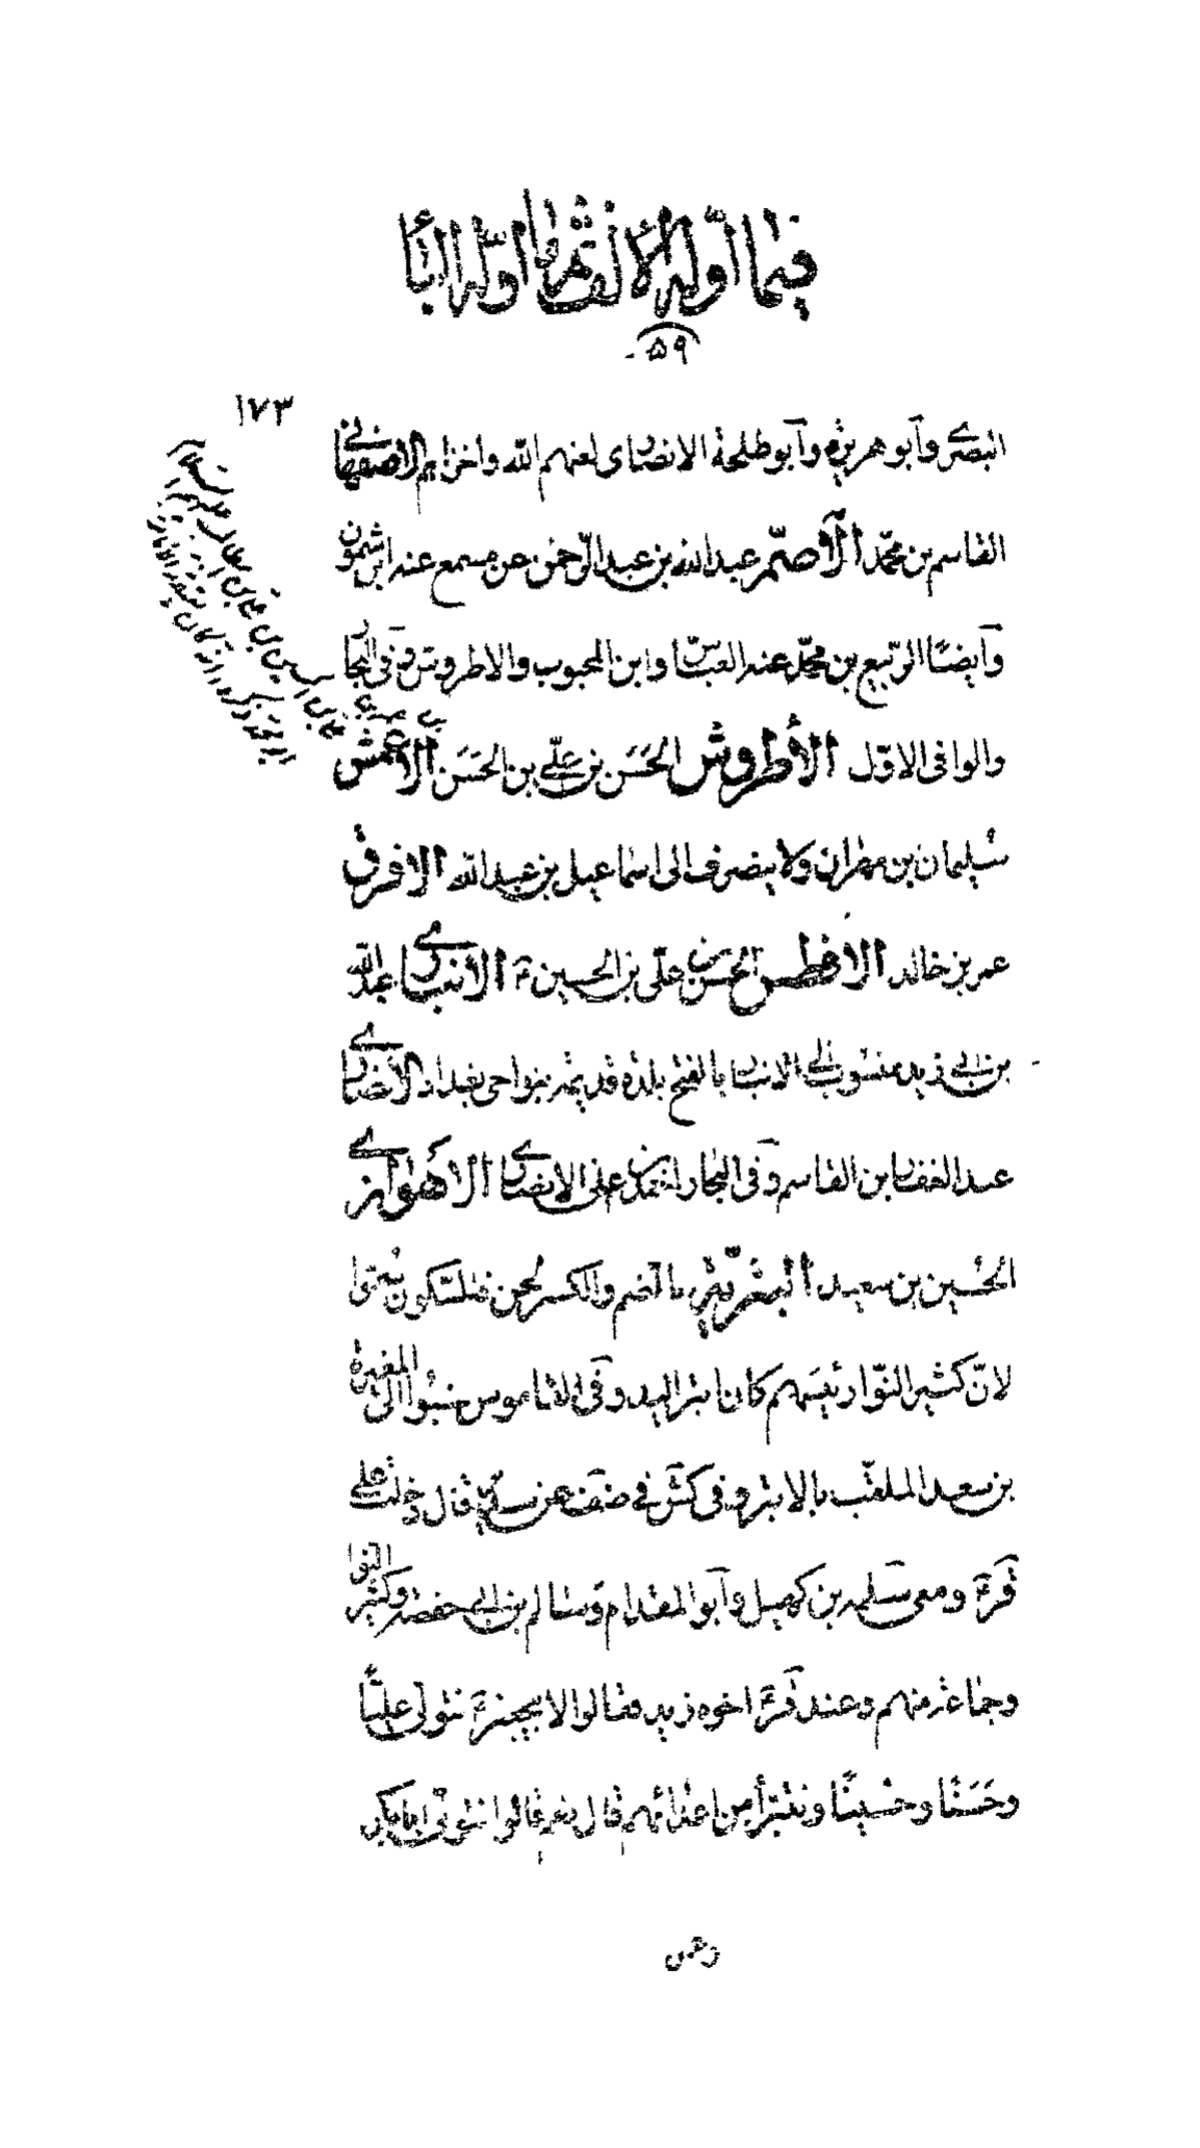 فيما اوّله الألف ثم ما اوّله البأ
٥٩
١٧٣
البصرى وآبو هريرة وآبو طلحة الانصارى لعنهم الله واخزاهم الاصفهانى
القاسم بن محمّد الأصمّ عبد الله بن عبد الرّحمن عن مسمع عنه ابن شمون
وآيضًا الرّبيع بن محمّد عنه العبّاس وابن المحبوب والاطروش وفى البحار
والوافى الاوّل الأطروش الحَسَن بن علّى بن الحَسَن الأعمش
سُليمان بن مهران ولا ينصرف الى اسماعيل بن عبد الله الافرق
عمر بن خالد الافطس الحسن بن علّى بن الحسين ع الأنبارى عبد الله
بن ابى زيد منسوب الى الانبار بالفتح بلدة قديمة بنواحى بغداد الأنصارى
عبد الغفار بن القاسم وفى البحار احمد بن على الانصارى الأهوازى
الحُسين بن سعيد البتريّة بالضم والكسر لحن فلتسكون سُمّوا
لانّ كثير النّوا رئيسهم كان ابتر اليد وفى القاموس نسبُوا الى المغيرة
بن سعد الملقّب بالابتر وفى كش فى ضعف عن سدير قال دخلت على
قرع ومعى سلمه بن كهيل وآبو المقدام وسالم بن ابى حفصه وكثير النوا
وجماعة منهم وعند قرع اخوه زيد فقالوا لابيجعفر ع نتولى عليًّا
وحَسَنًا وحُسينًا ونتبرأ من اعدائهم قال نعم قالوا نتولى ابابكر
وعمر